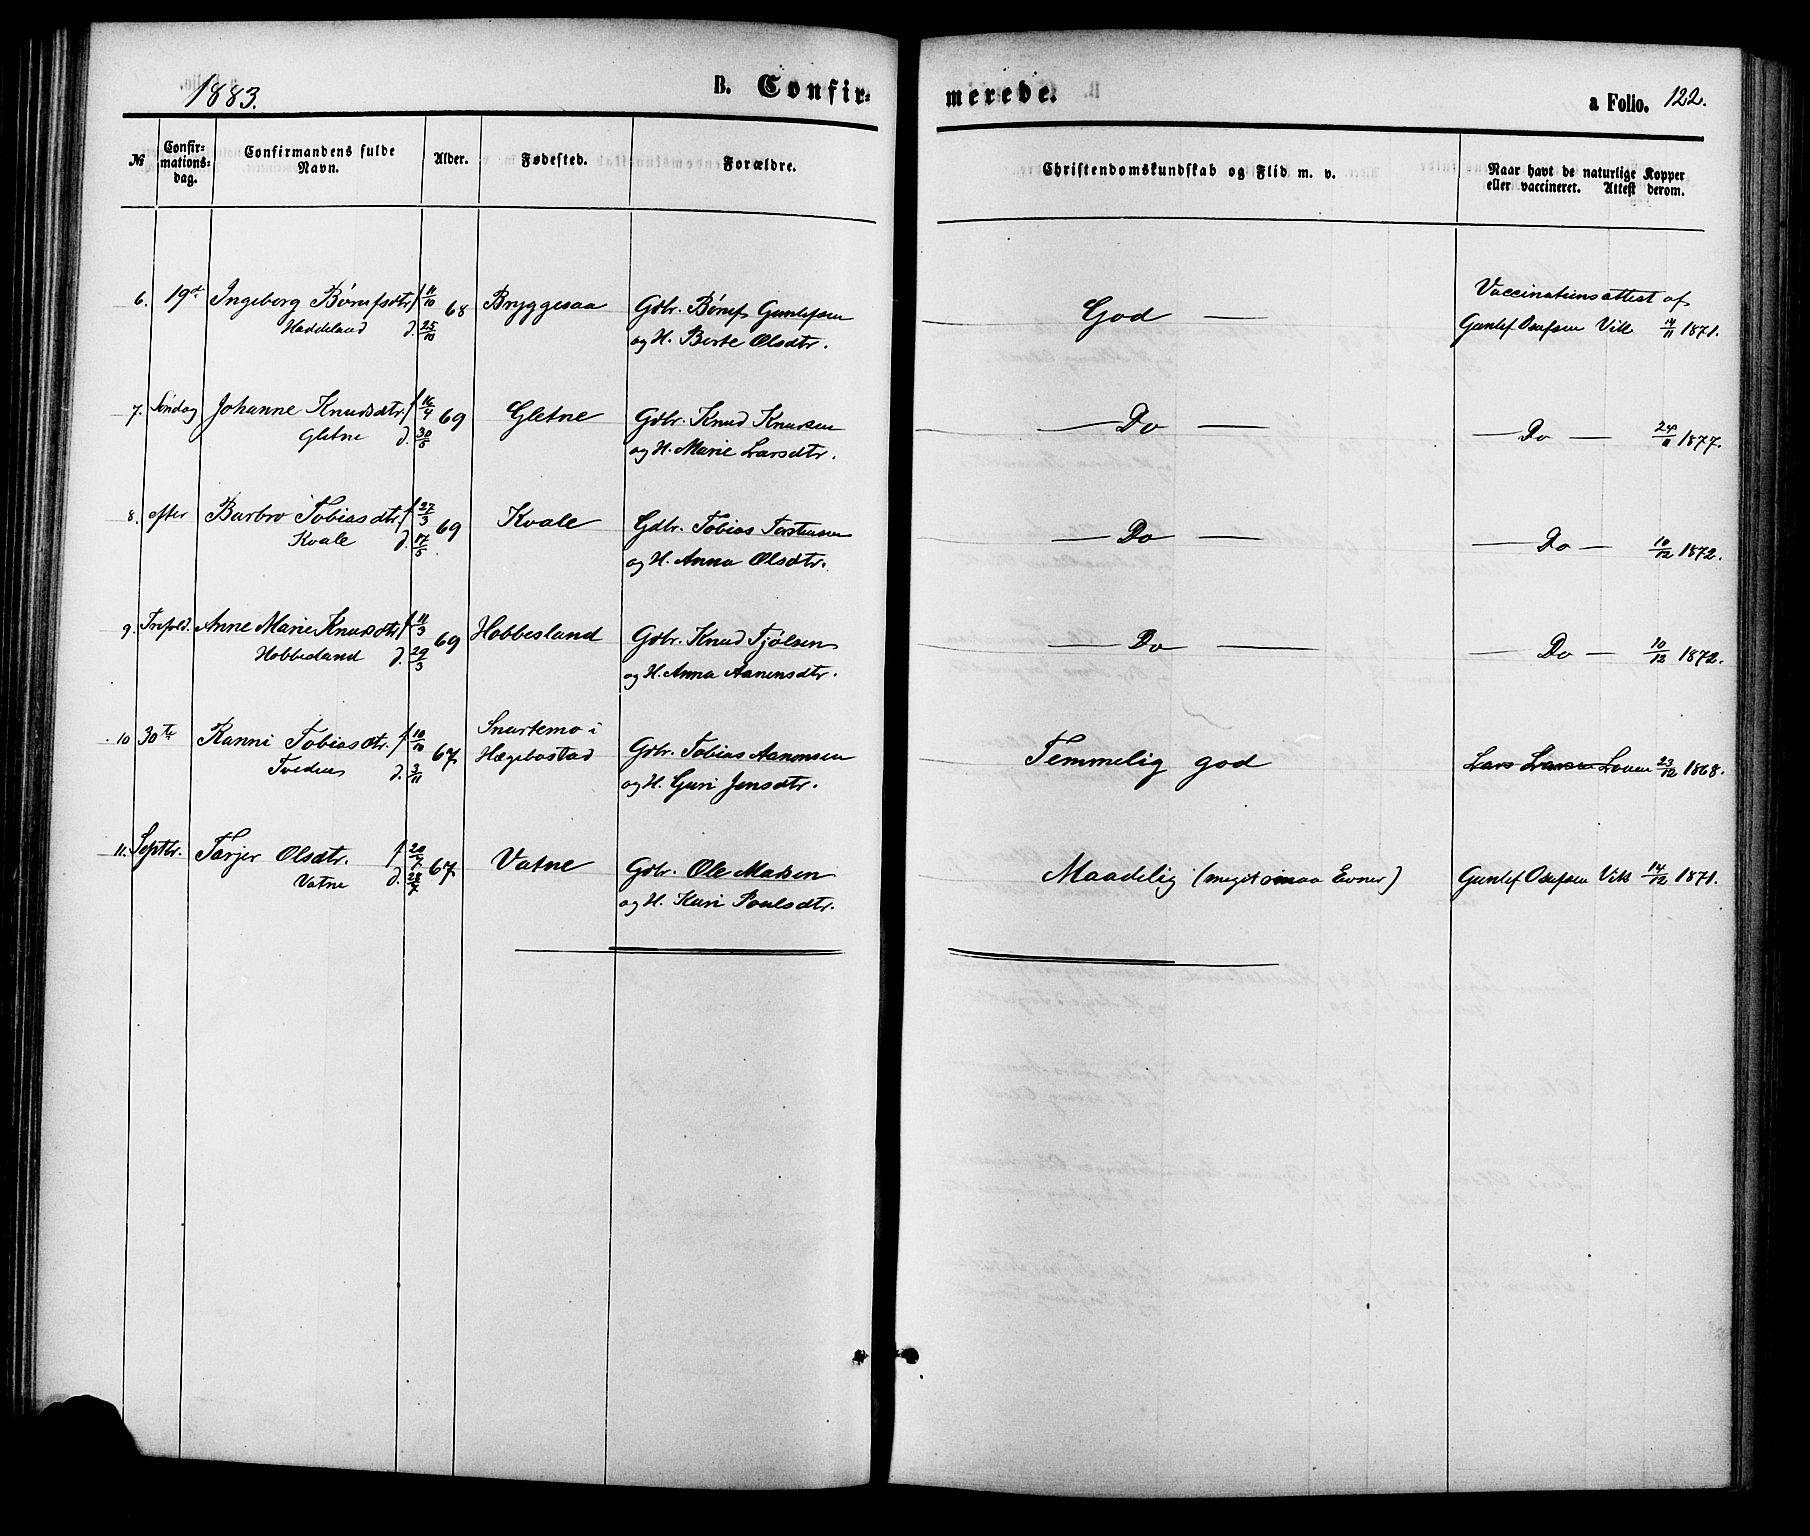 1883.
B. Confir-
merede.
a Folio. 122.
№
Confir-
mations-
dag.
Confirmandens fulde
Navn.
Alder.
Fødested.
Forældre.
Christendomskundskab og Flid m. v.
Naar havt de naturlige Kopper
eller vaccineret. Attest derom.
6. 19de Ingeborg Børufsdtr. f 11/10 68 Bryggesaa Gdbr. Børuf Guntefsen God — Vaccinationsattest af
Haddeland d. 25/10 og H. Berte Olsdtr. Guntef Osufsen Vik 14/11 1871.
7. Søndag Johanne Knudsdtr. f 16/4 69 Gletne Gdbr. Knud Knudsen — Do — — Do — 24/11 1877.
Gletne d. 30/5 og H. Marie Larsdtr.
8. efter Barbro Tobiasdtr. f 27/3 69 Kvale Gdbr. Tobias Terstensen — Do — — Do — 10/12 1872.
Kvale d. 17/5 og H. Anna Olsdtr.
9. Trefold. Anne Marie Knudsdtr. f 11/3 69 Hobbesland Gdbr. Knud Tjølsen — Do — — Do — 10/12 1872.
Hobbesland d. 29/3 og H. Anna Aanensdtr.
10 30te Ranni Tobiasdtr. f 10/10 67 Snartemo i
Hægebostad Gdbr. Tobias Aanonsen Temmelig god Lars Larsen Louen 23/12 1868.
Tveden d. 3/11 og H. Guri Jensdtr.
11. Septbr. Tarjer Olsdtr. f 20/7 67 Vatne Gdbr. Ole Madsen Maadelig (meget smaa Evner) Guntef Osufsen Vik 14/12 1871.
Vatne d. 28/7 og H. Kari Poulsdtr.